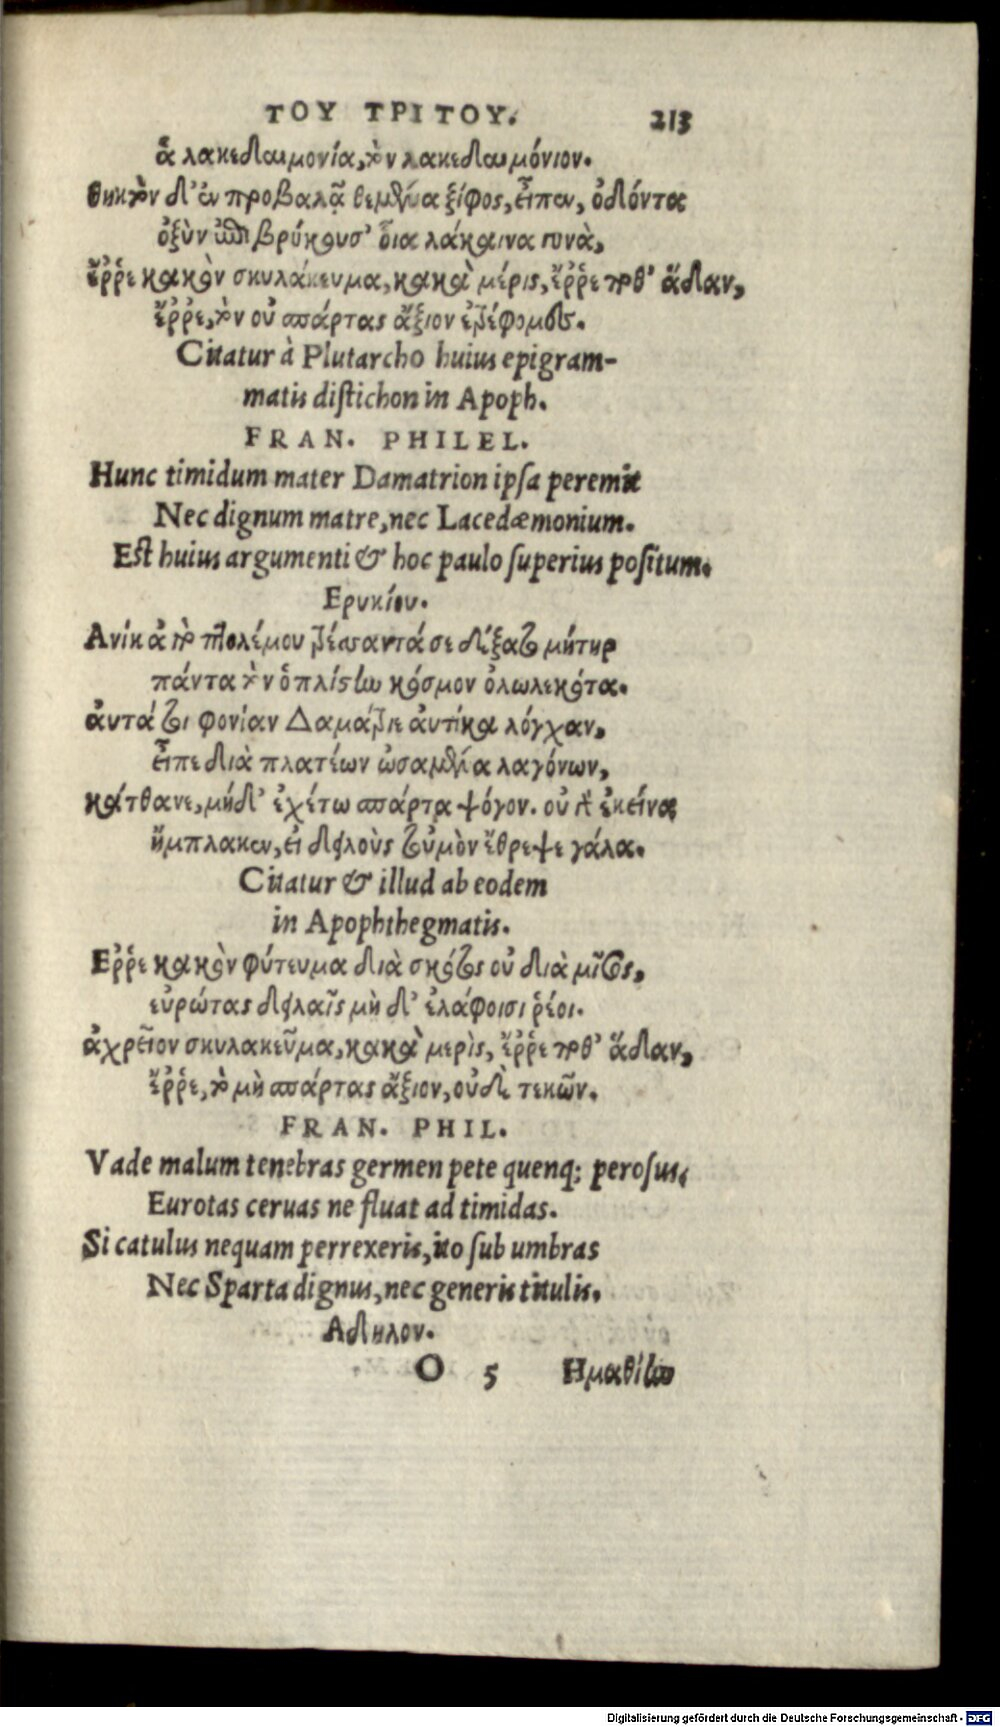 ΤΟΥ ΤΡΙΤΟΥ. 213
ἁ λακεδαιμονία, τὸν λακεδαιμόνιον.
θηκτὸν δ' ἐν προβολᾷ θεμένα ξίφος, εἶπεν, ὀδόντα
ὀξὺν ἐπιβρύκουσ' οἷα λάκαινα γυνὰ,
ἔῤῥε κακὸν σκυλάκευμα, κακὰ μέρις, ἔῤῥε ποθ' ἅδαν,
ἔῤῥε, τὸν οὐ σπάρτας ἄξιον ἐτρέφομες.
Citatur à Plutarcho huius epigram-
matis distichon in Apoph.
FRAN. PHILEL.
Hunc timidum mater Damatrion ipsa peremit
Nec dignum matre, nec Lacedæmonium.
Est huius argumenti & hoc paulo superius positum.
Ερυκίου.
Ανίκ' ἀπὸ πτολέμου τρέσαντά σε δέξατο μήτηρ
πάντα τὸν ὁπλίσταν κόσμον ὀλωλεκότα.
ἀυτά τοι φονίαν Δαμάτριε ἀυτίκα λόγχαν,
εἶπε διὰ πλατέων ὠσαμένα λαγόνων,
κάτθανε, μήδ' ἐχέτω σπάρτα ψόγον. οὐ γὰρ ἐκείνα
ἤμπλακεν, εἰ δειλοὺς τοὐμὸν ἔθρεψε γάλα.
Citatur & illud ab eodem
in Apophthegmatis.
Ερῥε κακὸν φύτευμα διὰ σκότος οὗ διὰ μῖσος,
εὐρώτας δειλαῖς μὴ δ' ἐλάφοισι ῥέοι.
ἀχρεῖον σκυλακεῦμα, κακὰ μερὶς, ἔῤῥε ποθ' ἅδαν,
ἔῤῥε, τὸ μὴ σπάρτας ἄξιον, οὐδὲ τεκῶν.
FRAN. PHIL.
Vade malum tenebras germen pete quenq; perosus,
Eurotas ceruas ne fluat ad timidas.
Si catulus nequam perrexeris, ito sub umbras
Nec Sparta dignus, nec generis titulis.
Αδηλον.
O 5 Ημαθίων
Digitalisierung gefördert durch die Deutsche Forschungsgemeinschaft - DFG